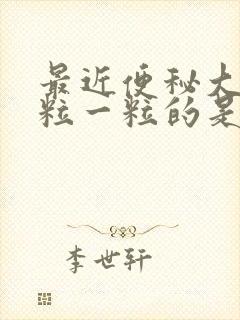 最近便秘大
粒一粒的是
李世轩